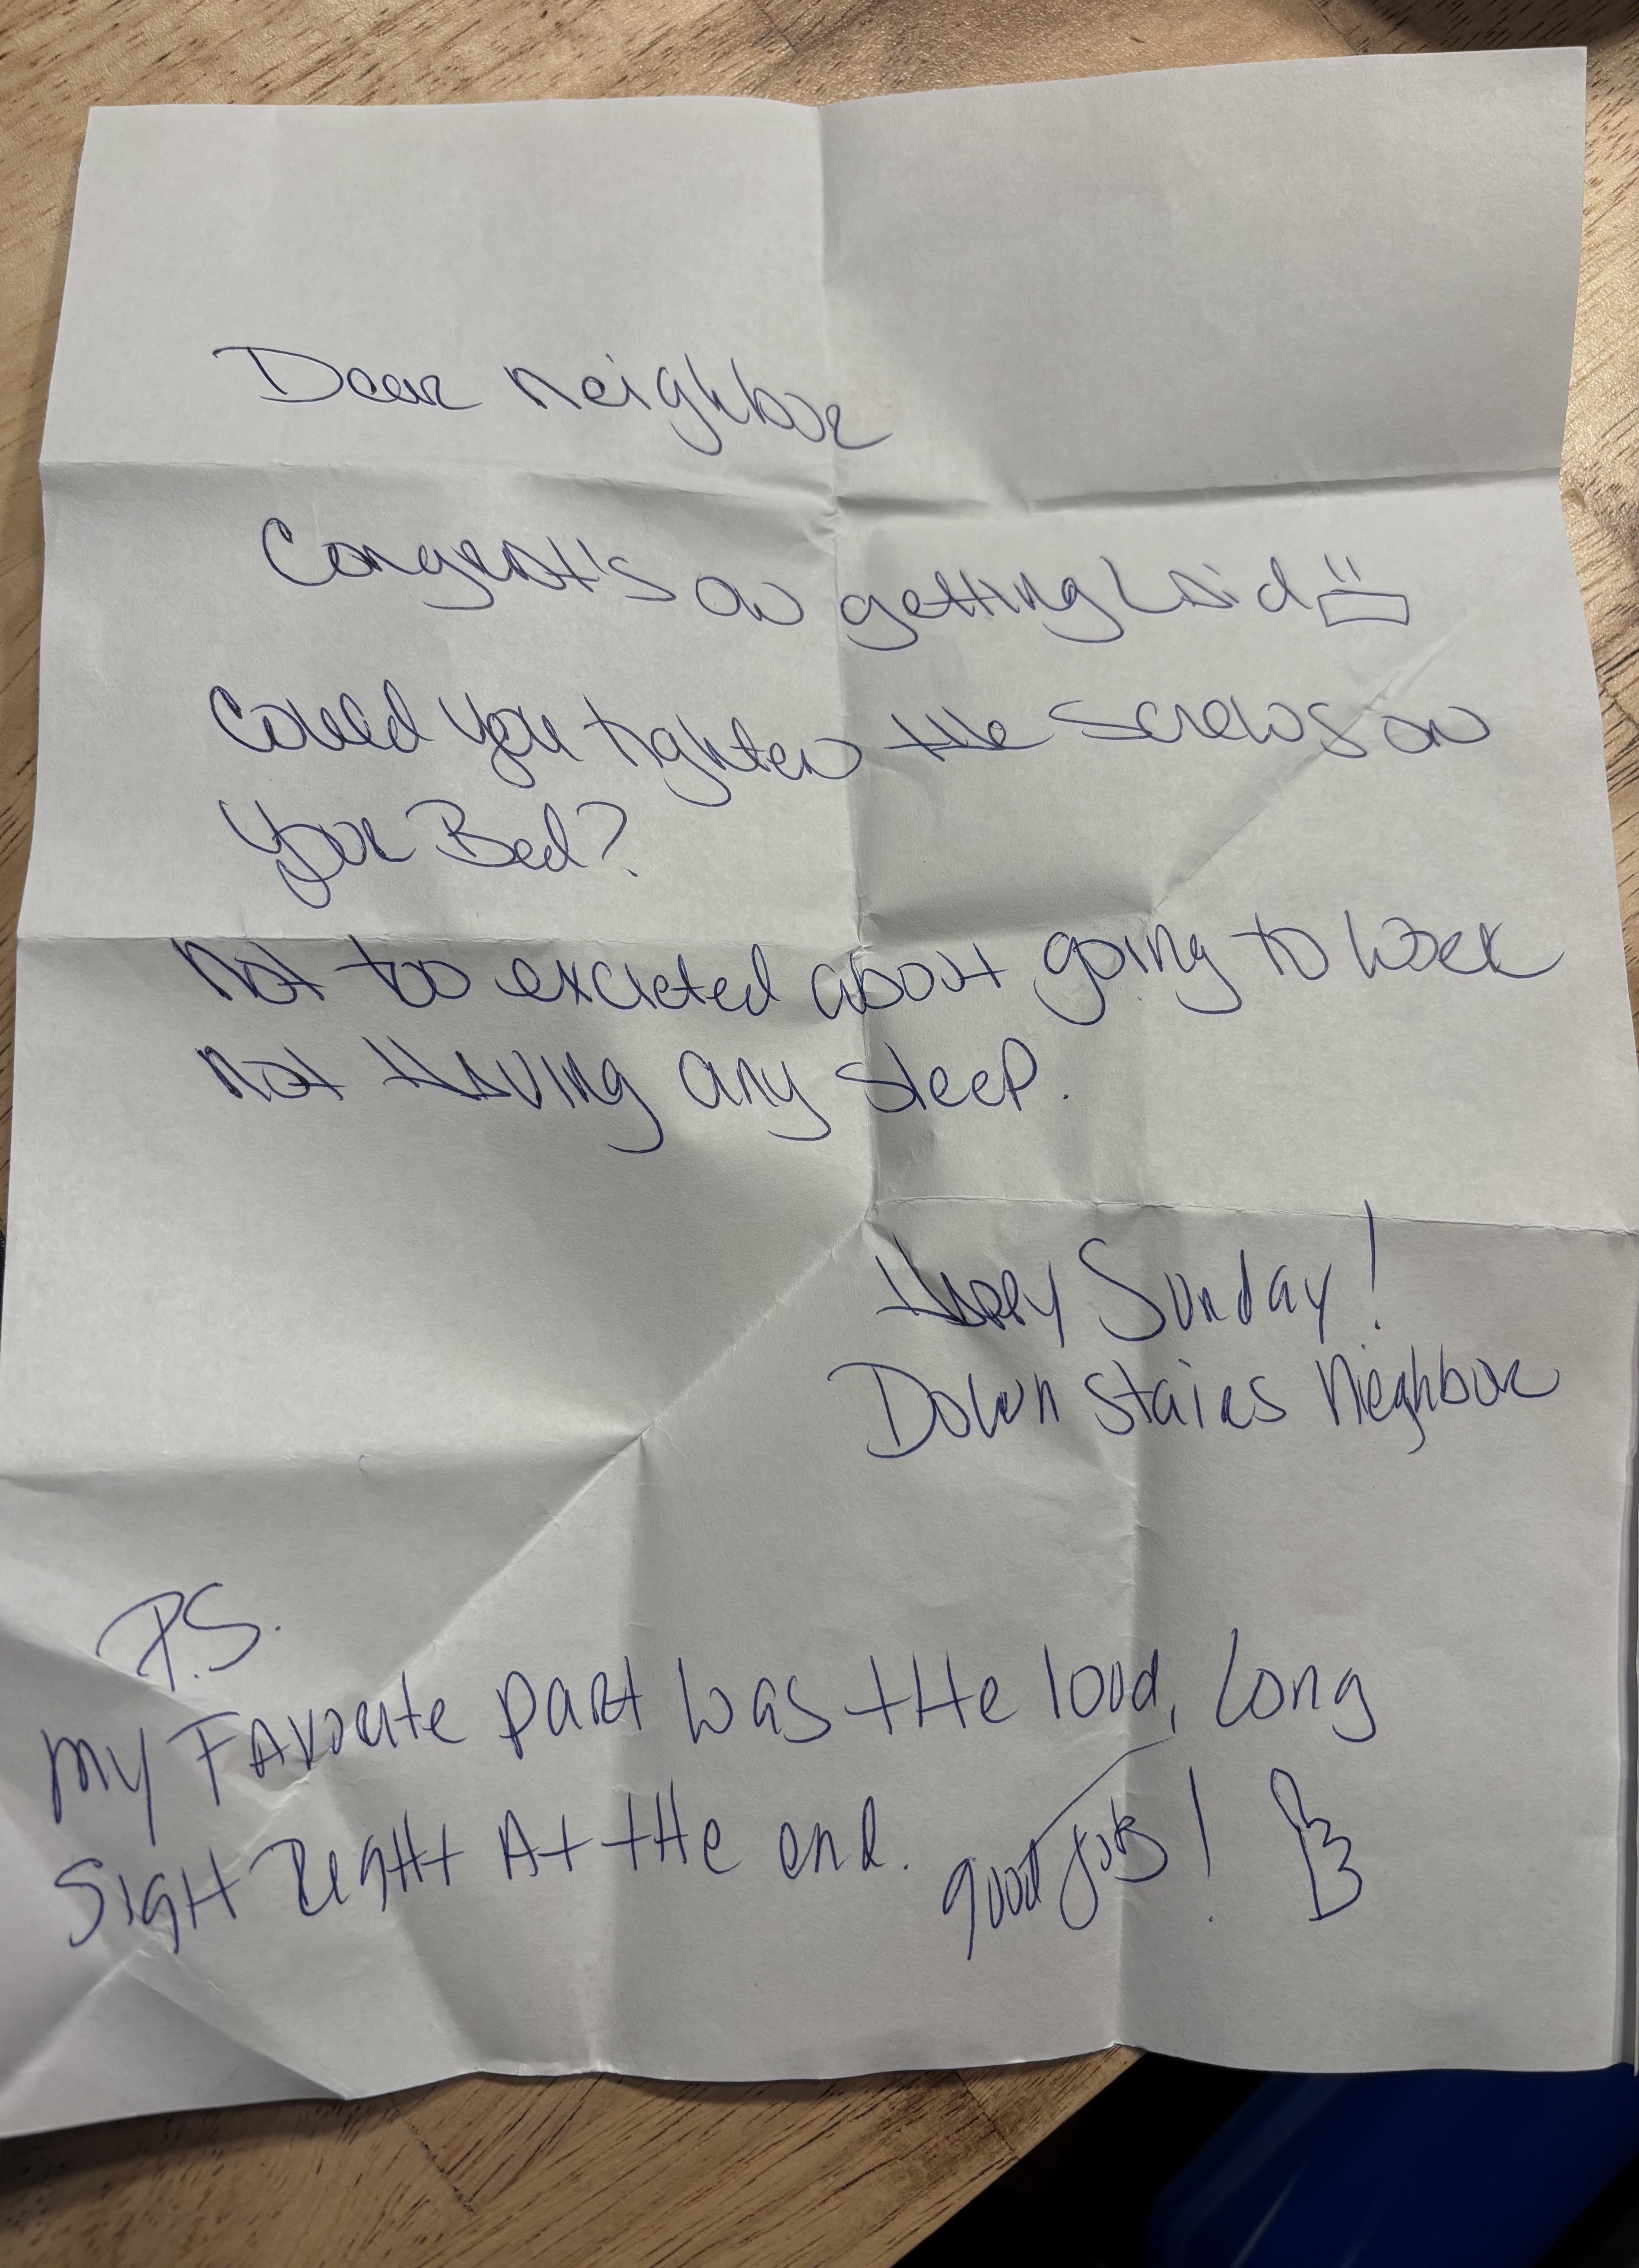 Dear neighbor
Congrat's on getting Laid
Could you tighten the screws on
your Bed?
not too excieted about going to work
not Having any sleep.
Happy Sunday!
Down stairs Nieghbor
P.S.
My Favorite part was the loud, long
Sigh Right At the end. good job!